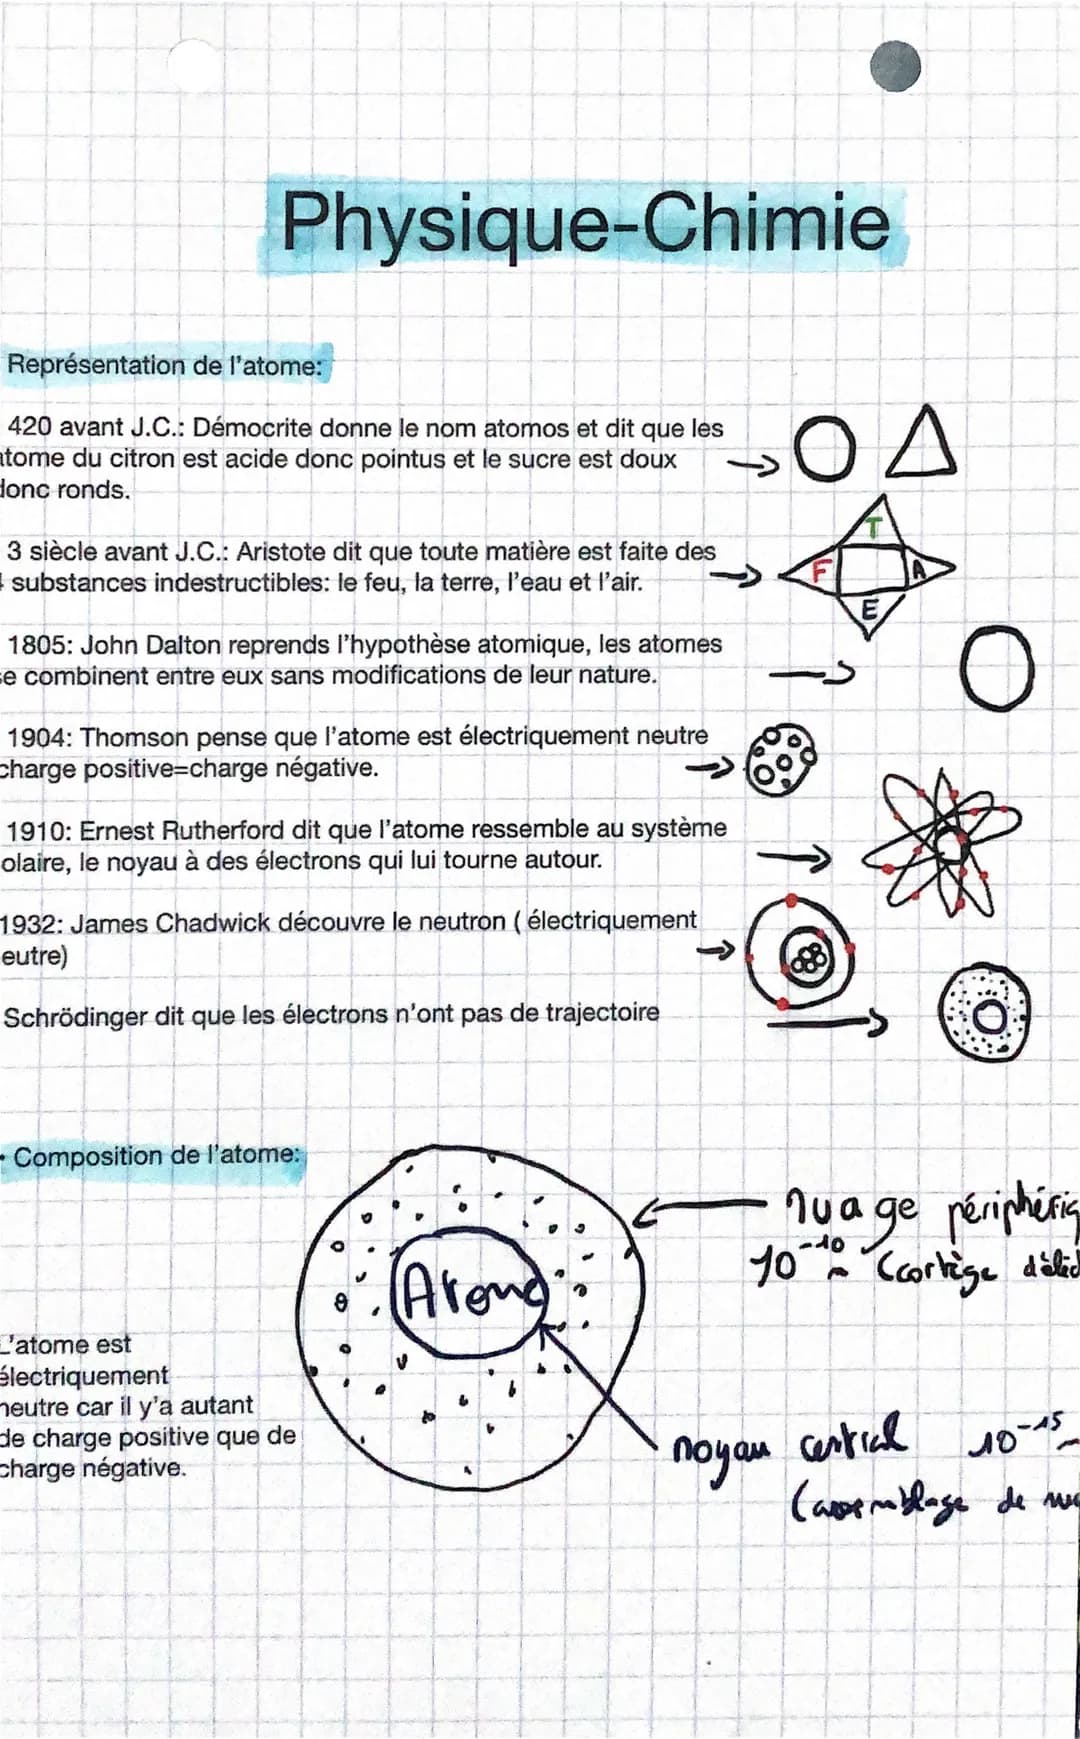 Physique-Chimie
Représentation de l'atome:
420 avant J.C.: Démocrite donne le nom atomos et dit que les
atome du citron est acide donc pointus et le sucre est doux
donc ronds.
3 siècle avant J.C.: Aristote dit que toute matière est faite des
substances indestructibles: le feu, la terre, l'eau et l'air.
T
F
A
E
1805: John Dalton reprends l'hypothèse atomique, les atomes
se combinent entre eux sans modifications de leur nature.
1904: Thomson pense que l'atome est électriquement neutre
charge positive=charge négative.
1910: Ernest Rutherford dit que l'atome ressemble au système
olaire, le noyau à des électrons qui lui tourne autour.
1932: James Chadwick découvre le neutron ( électriquement
eutre)
Schrödinger dit que les électrons n'ont pas de trajectoire
• Composition de l'atome:
nuage périphériq
10⁻¹⁰ m (cortège d'élec
Atome
L'atome est
électriquement
neutre car il y'a autant
de charge positive que de
charge négative.
noyau central 10⁻¹⁵
(assemblage de nuc